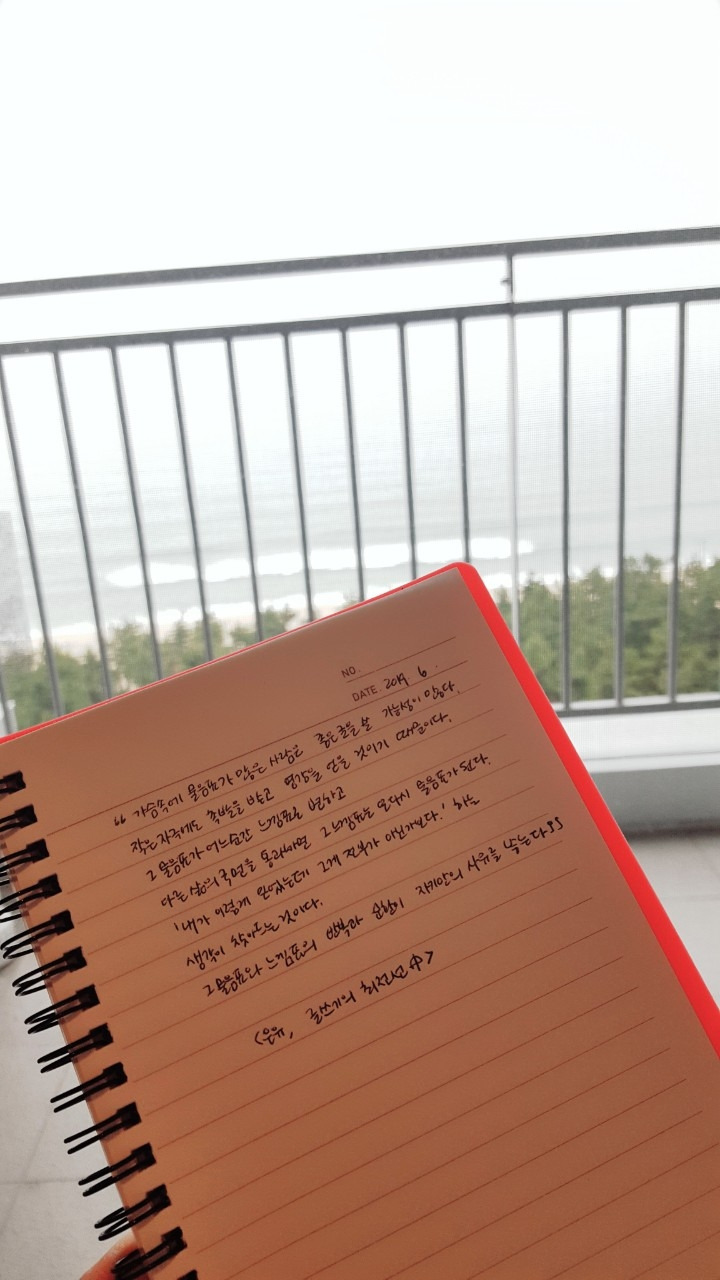 NO.
DATE. 2019. 6.
“ 가슴속에 물음표가 많은 사람은 좋은 글을 쓸 가능성이 많다.
작은 자극에도 촉발을 받고 영감을 얻을 것이기 때문이다.
그 물음표가 어느순간 느낌표로 변하고
다른 삶의 국면을 통과하면 그 느낌표는 또다시 물음표가 된다.
'내가 이렇게 믿었는데 그게 전부가 아닌가보다.' 하는
생각이 찾아오는 것이다.
그 물음표와 느낌표의 반복과 순환이 자기안의 사유를 낳는다”
<은유, 글쓰기의 최전선 中>